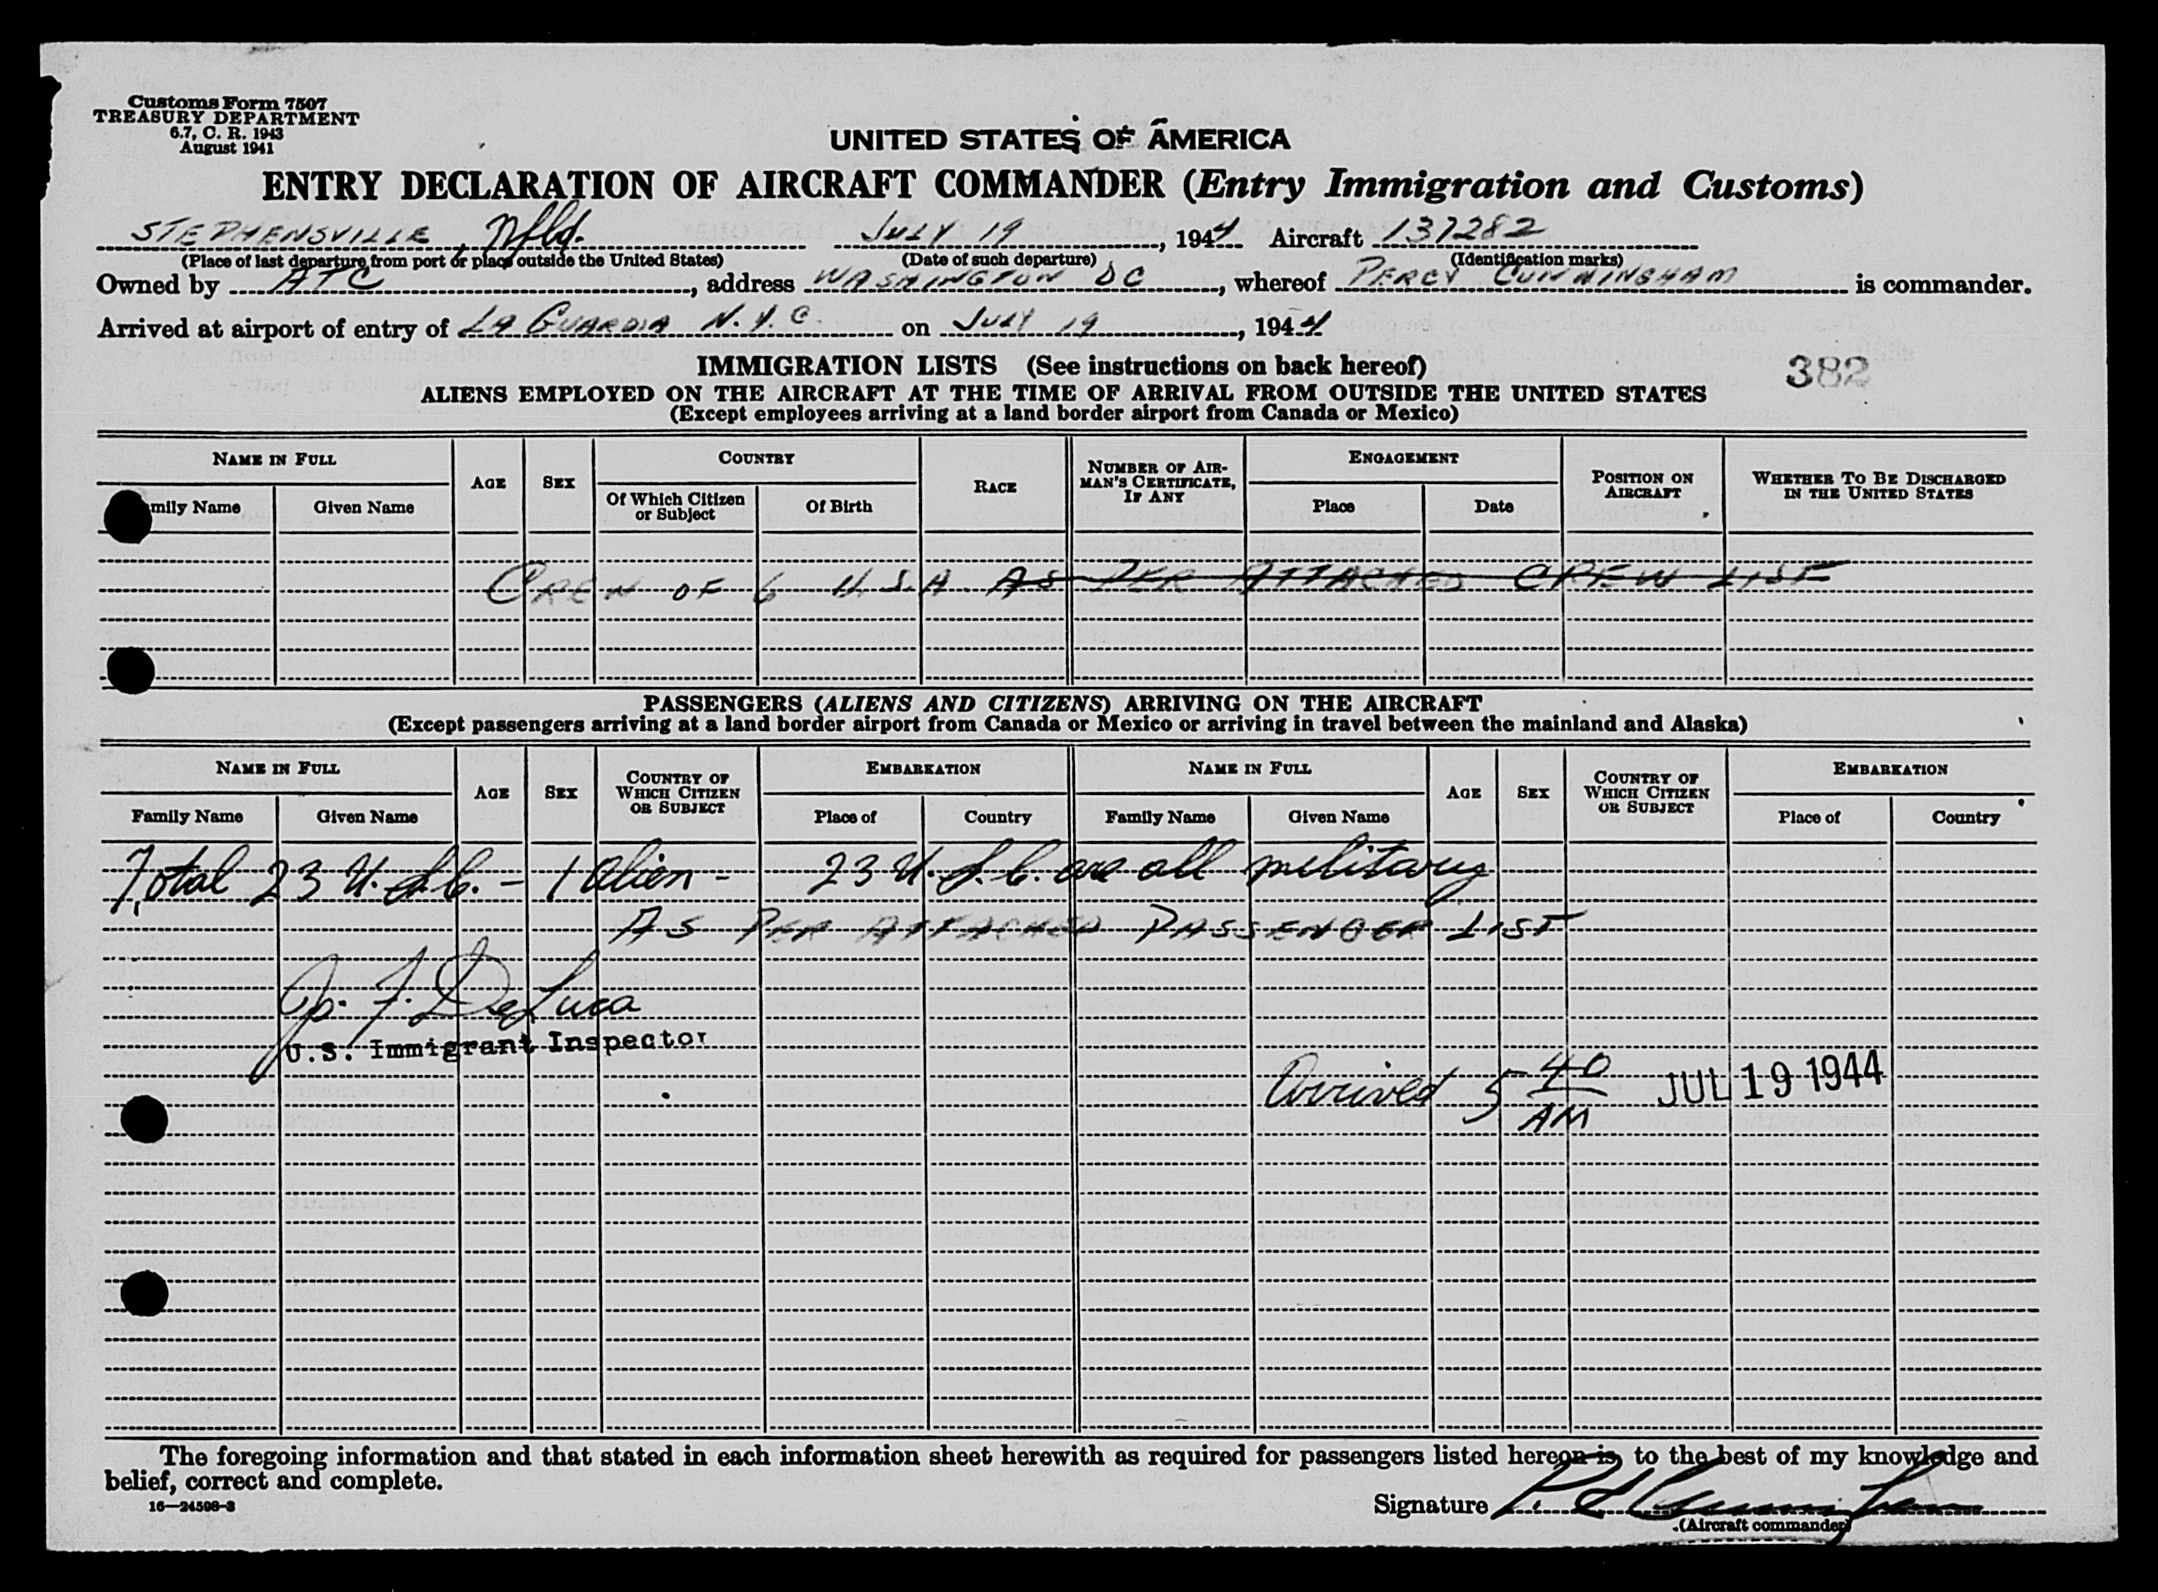 Customs Form 7507
TREASURY DEPARTMENT
6.7, C. R. 1943
August 1941
UNITED STATES OF AMERICA
ENTRY DECLARATION OF AIRCRAFT COMMANDER (Entry Immigration and Customs)
STEPHENSVILLE, Nfld. JULY 19, 1944 Aircraft 137282
(Place of last departure from port or place outside the United States) (Date of such departure) (Identification marks)
Owned by ATC, address WASHINGTON DC, whereof PERCY CUNNINGHAM is commander.
Arrived at airport of entry of LA GUARDIA N.Y.C. on JULY 19, 1944
IMMIGRATION LISTS (See instructions on back hereof)
382
ALIENS EMPLOYED ON THE AIRCRAFT AT THE TIME OF ARRIVAL FROM OUTSIDE THE UNITED STATES
(Except employees arriving at a land border airport from Canada or Mexico)
NAME IN FULL AGE SEX COUNTRY RACE NUMBER OF AIRMAN'S CERTIFICATE, IF ANY ENGAGEMENT POSITION ON AIRCRAFT WHETHER TO BE DISCHARGED IN THE UNITED STATES
mily Name Given Name Of Which Citizen or Subject Of Birth Place Date
CREW OF 6 U.S.A. AS PER ATTACHED CREW LIST
PASSENGERS (ALIENS AND CITIZENS) ARRIVING ON THE AIRCRAFT
(Except passengers arriving at a land border airport from Canada or Mexico or arriving in travel between the mainland and Alaska)
NAME IN FULL AGE SEX COUNTRY OF WHICH CITIZEN OR SUBJECT EMBARKATION NAME IN FULL AGE SEX COUNTRY OF WHICH CITIZEN OR SUBJECT EMBARKATION
Family Name Given Name Place of Country Family Name Given Name Place of Country
Total 23 U.S.C. - 1 Alien - 23 U.S.C. are all military
AS PER ATTACHED PASSENGER LIST
Jo. F. DeLuca
U.S. Immigrant Inspector
Arrived 5 40 AM JUL 19 1944
The foregoing information and that stated in each information sheet herewith as required for passengers listed hereon is, to the best of my knowledge and
belief, correct and complete.
16—24598-3
Signature P. L Cunningham
(Aircraft commander)